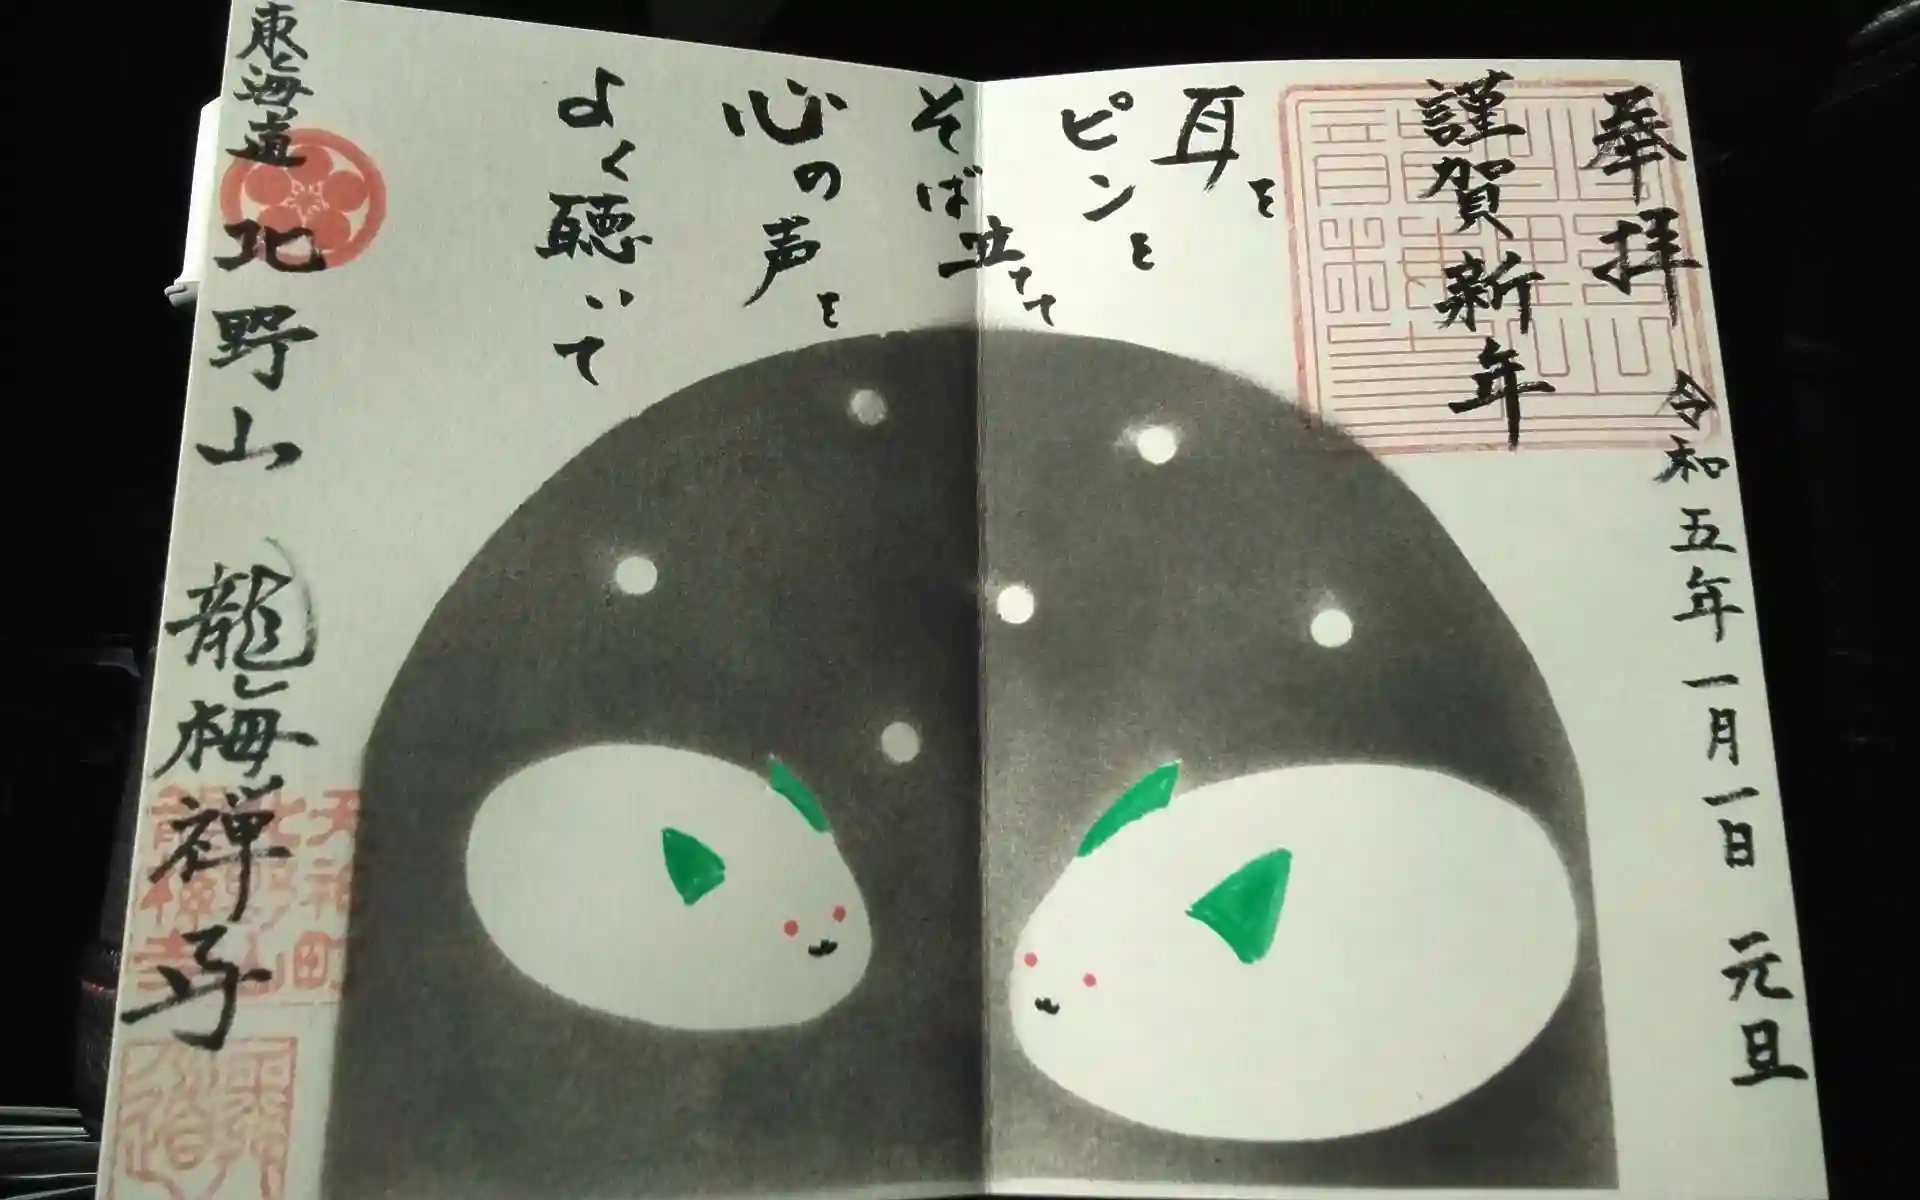 奉拝
令和五年一月一日 元旦
謹賀新年
耳を
ピンと
そば立てて
心の声を
よく聴いて
東海道
北野山 龍梅禅寺
天神町
北野山
龍梅禅寺